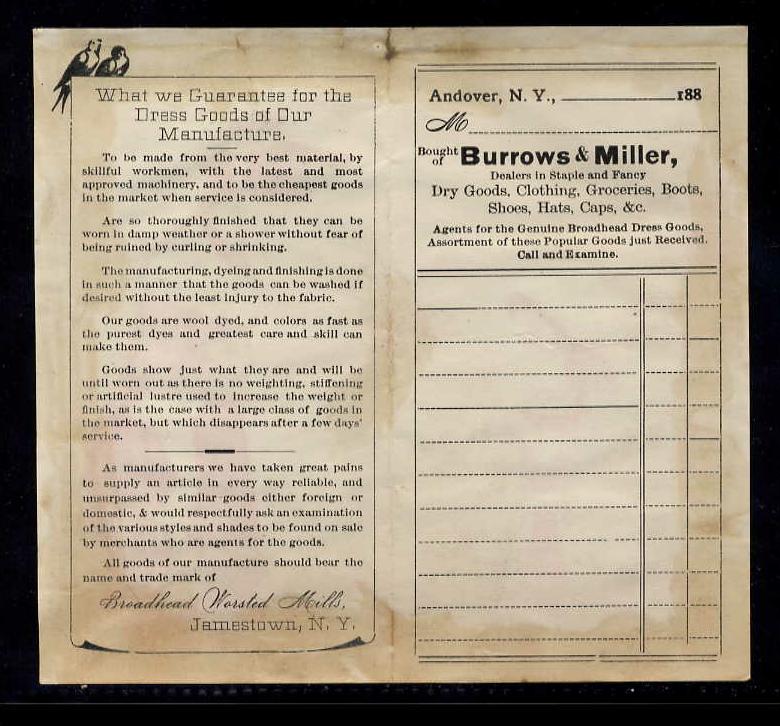 What we Guarantee for the
Dress Goods of Our
Manufacture.
To be made from the very best material, by
skillful workmen, with the latest and most
approved machinery, and to be the cheapest goods
in the market when service is considered.
Are so thoroughly finished that they can be
worn in damp weather or a shower without fear of
being ruined by curling or shrinking.
The manufacturing, dyeing and finishing is done
in such a manner that the goods can be washed if
desired without the least injury to the fabric.
Our goods are wool dyed, and colors as fast as
the purest dyes and greatest care and skill can
make them.
Goods show just what they are and will be
until worn out as there is no weighting, stiffening
or artificial lustre used to increase the weight or
finish, as is the case with a large class of goods in
the market, but which disappears after a few days'
service.
As manufacturers we have taken great pains
to supply an article in every way reliable, and
unsurpassed by similar goods either foreign or
domestic, & would respectfully ask an examination
of the various styles and shades to be found on sale
by merchants who are agents for the goods.
All goods of our manufacture should bear the
name and trade mark of
Broadhead Worsted Mills,
Jamestown, N. Y.
Andover, N. Y., 188
M
Bought of Burrows & Miller,
Dealers in Staple and Fancy
Dry Goods, Clothing, Groceries, Boots,
Shoes, Hats, Caps, &c.
Agents for the Genuine Broadhead Dress Goods,
Assortment of these Popular Goods just Received.
Call and Examine.